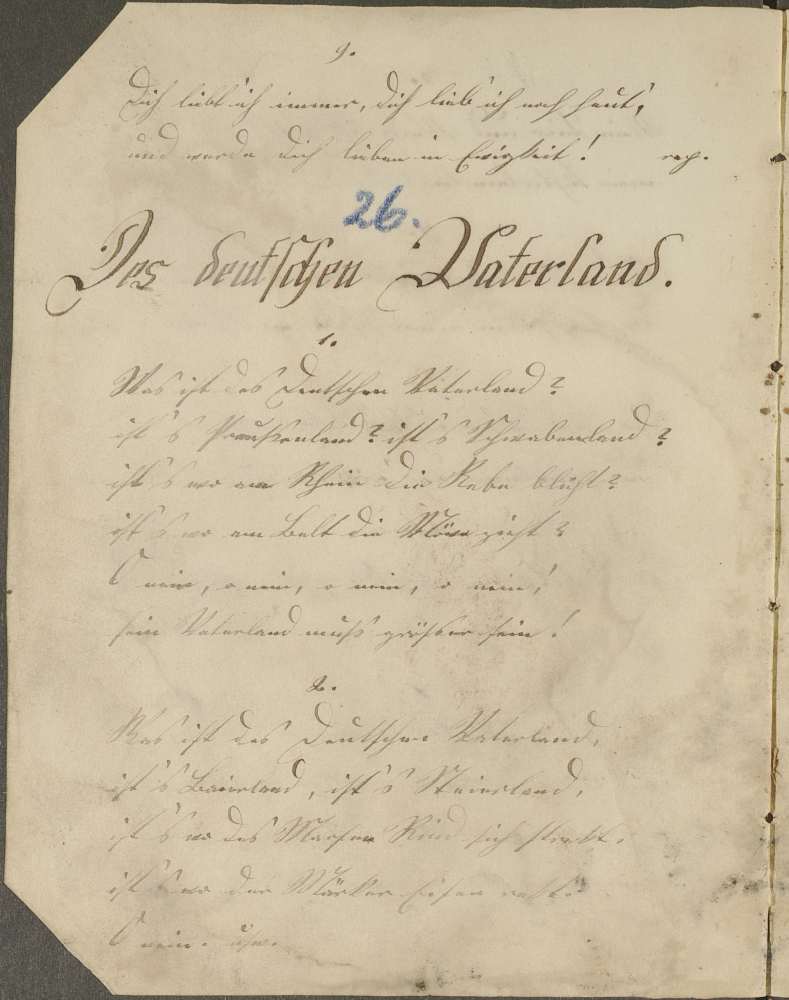 9.
Dich liebt ich immer, dich lieb ich noch heut,
und werde dich lieben in Ewigkeit! rep.
26.
Des deutschen Vaterland.
1.
Was ist des Deutschen Vaterland?
ist's Preußenland? ist's Schwabenland?
ist's wo am Rhein die Rebe blüht?
ist's wo am Belt die Möve zieht?
O nein, o nein, o nein, o nein!
sein Vaterland muß größer sein!
2.
Was ist des Deutschen Vaterland,
ist's Baierland, ist's Steierland,
ist's wo des Marsen Rind sich streckt,
ist's wo der Märker Eisen reckt.
O nein. usw.